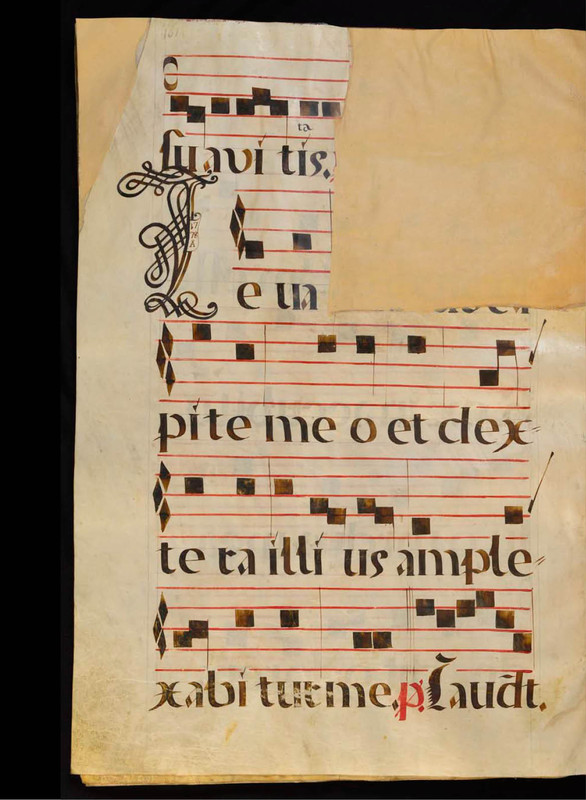 ta
suavi tis.
Leua
pite me o et dex=
te ra illi us ample=
xabi tur me. p. Laudt.